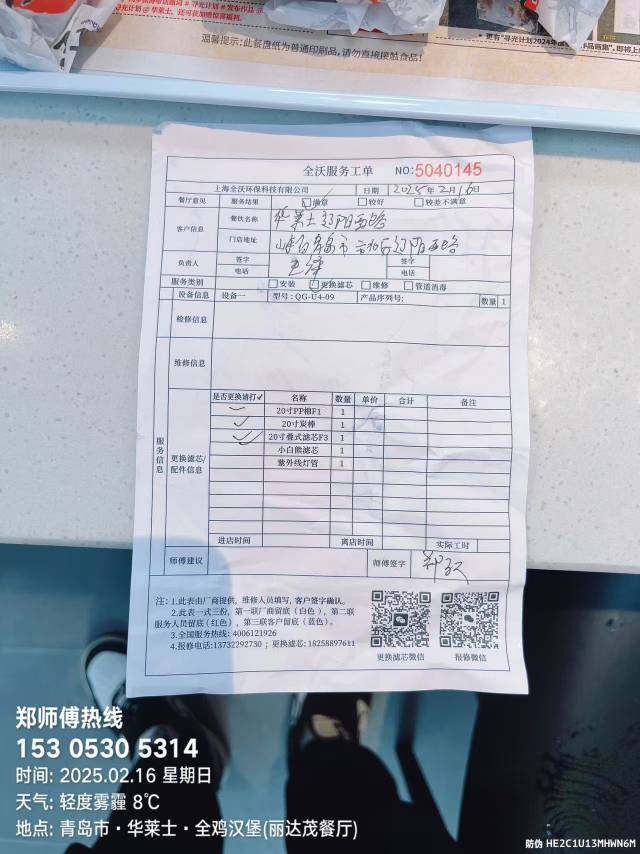 温馨提示：此餐盘纸为普通印刷品，请勿直接接触食品！
全沃服务工单 NO:5040145
上海全沃环保科技有限公司 日期 2025年2月16日
餐厅意见 服务结果 满意 较好 较差不满意
客户信息 餐饮名称 华莱士辽阳西路
门店地址 山东省青岛市 辽阳西路
负责人 签字 签字
电话 电话
服务类别 安装 更换滤芯 维修 管道消毒
设备信息 设备一 型号：QG-U4-09 产品序列号: 数量 1
检修信息
维修信息
服务信息
更换滤芯/配件信息
是否更换请打✓ 名称 数量 单价 合计 备注
✓ 20寸PP棉F1 1
✓ 20寸炭棒 1
✓ 20寸叠式滤芯F3 1
小白熊滤芯 1
紫外线灯管 1
进店时间 离店时间 实际工时
师傅建议 师傅签字
注：1.此表由厂商提供，维修人员填写，客户签字确认。
2.此表一式三份，第一联厂商留底（白色），第二联
服务人员留底(红色），第三联客户留底（蓝色）。
3.全国服务热线: 4006121926
4.报修电话:13732292730；更换滤芯: 18258897611
更换滤芯微信 报修微信
郑师傅热线
153 0530 5314
时间: 2025.02.16 星期日
天气: 轻度雾霾 8℃
地点: 青岛市·华莱士·全鸡汉堡(丽达茂餐厅)
防伪 HE2C1U13MHWN6M